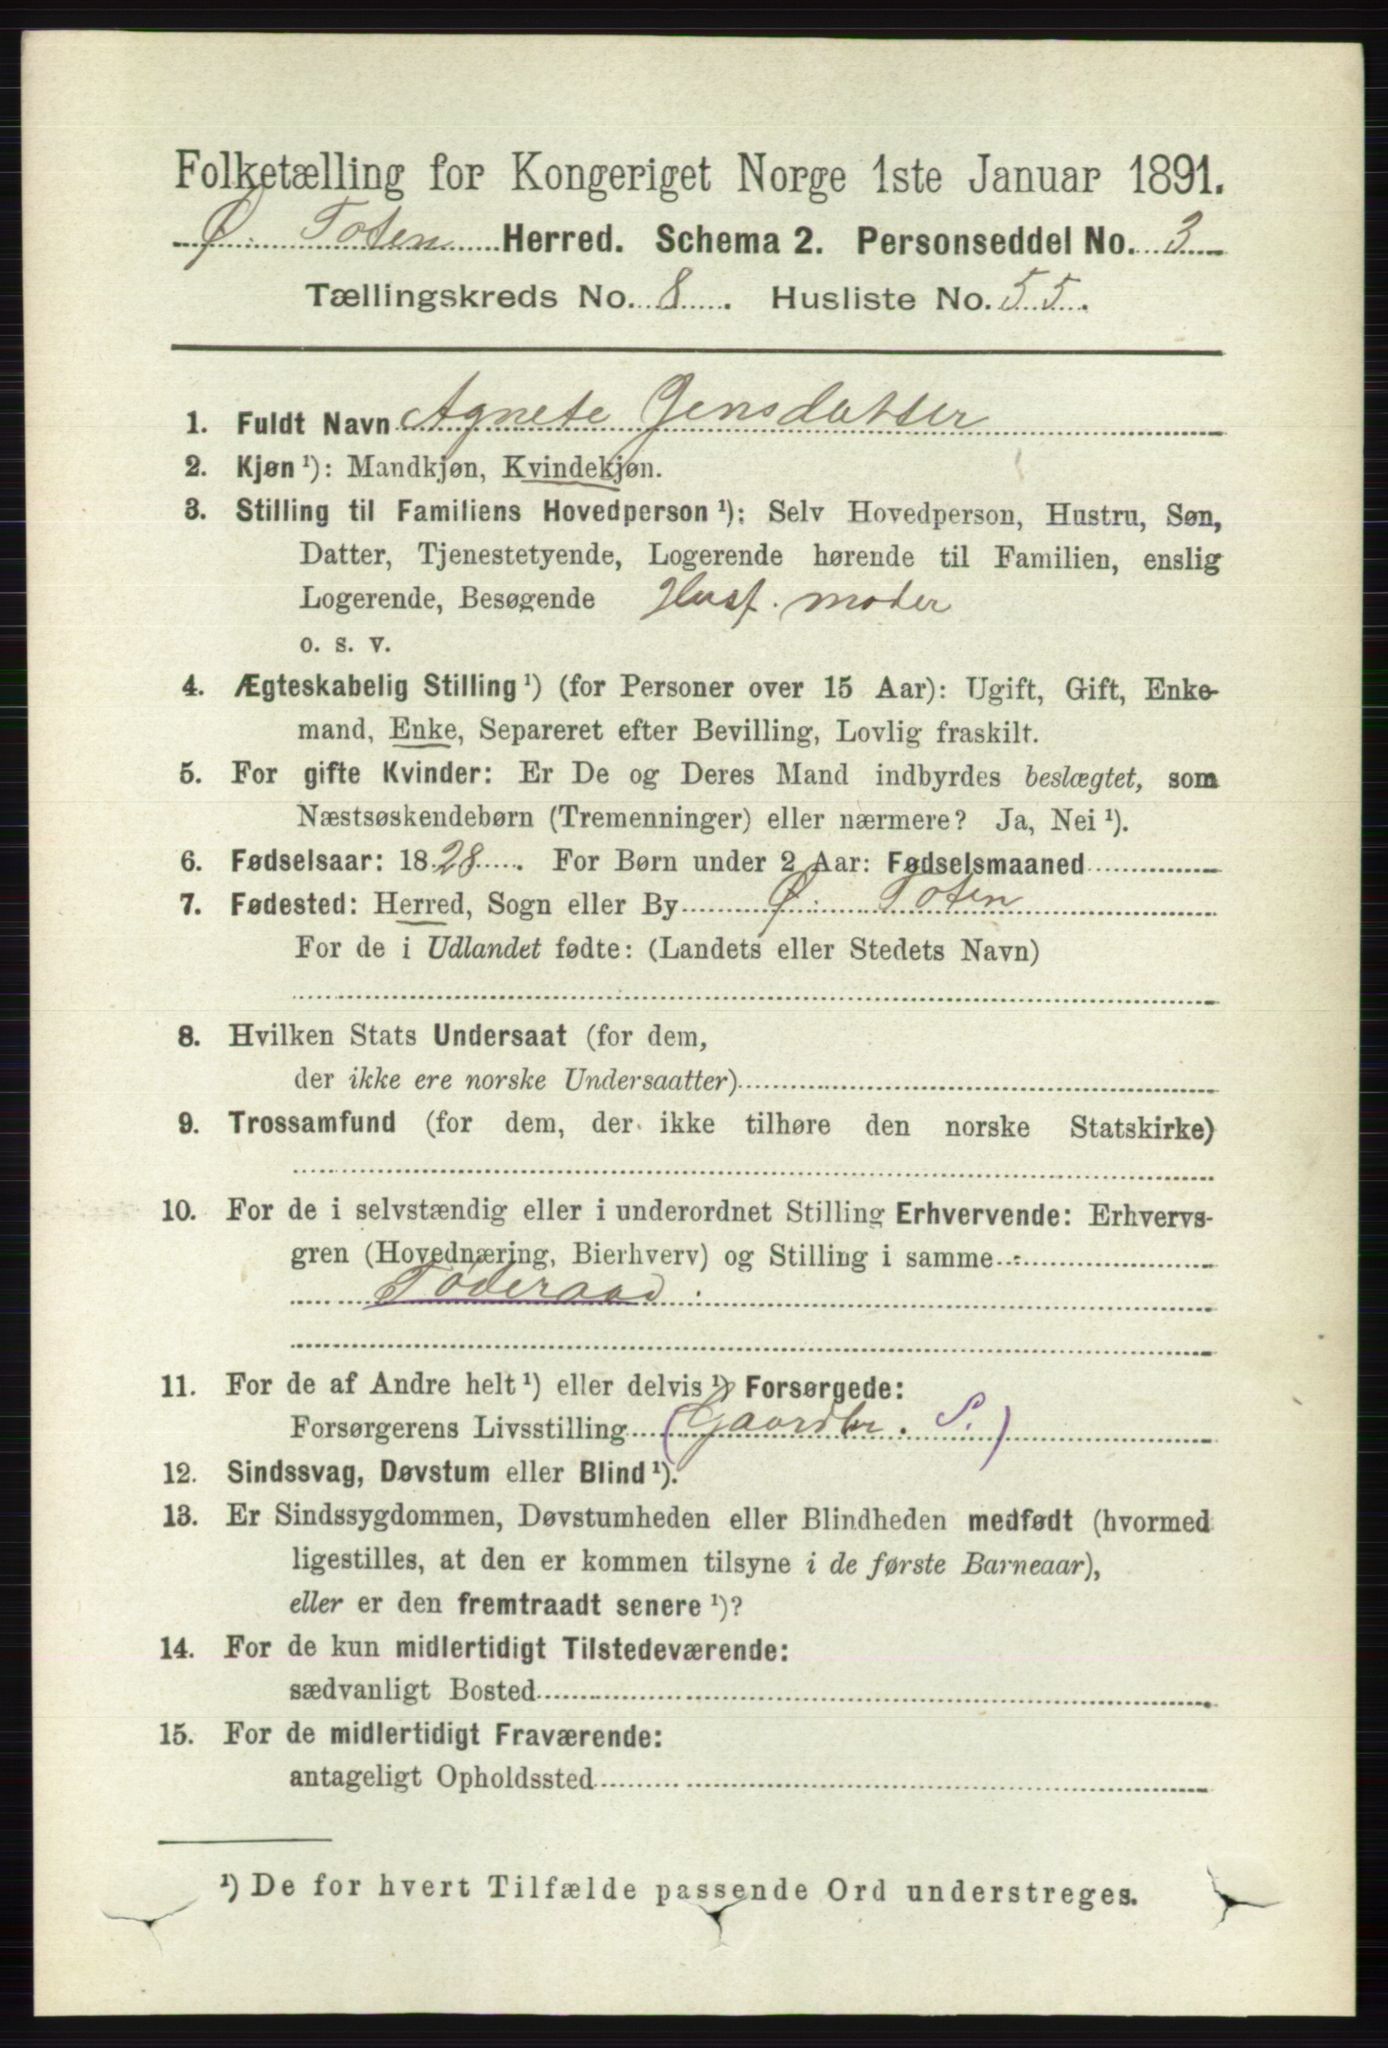 Folketælling for Kongeriget Norge 1ste Januar 1891.
Ø. Toten Herred. Schema 2. Personseddel No. 3
Tællingskreds No. 8. Husliste No. 55.
1. Fuldt Navn Agnete Jensdatter
2. Kjøn ¹): Mandkjøn, Kvindekjøn.
3. Stilling til Familiens Hovedperson ¹): Selv Hovedperson, Hustru, Søn,
Datter, Tjenestetyende, Logerende hørende til Familien, enslig
Logerende, Besøgende Husf. moder
o. s. v.
4. Ægteskabelig Stilling ¹) (for Personer over 15 Aar): Ugift, Gift, Enke-
mand, Enke, Separeret efter Bevilling, Lovlig fraskilt.
5. For gifte Kvinder: Er De og Deres Mand indbyrdes beslægtet, som
Næstsøskendebørn (Tremenninger) eller nærmere? Ja, Nei ¹).
6. Fødselsaar: 1828. For Børn under 2 Aar: Fødselsmaaned
7. Fødested: Herred, Sogn eller By Ø. Toten
For de i Udlandet fødte: (Landets eller Stedets Navn)
8. Hvilken Stats Undersaat (for dem,
der ikke ere norske Undersaatter)
9. Trossamfund (for dem, der ikke tilhøre den norske Statskirke)
10. For de i selvstændig eller i underordnet Stilling Erhvervende: Erhvervs-
gren (Hovednæring, Bierhverv) og Stilling i samme
Føderaad
11. For de af Andre helt ¹) eller delvis ¹) Forsørgede:
Forsørgerens Livsstilling (Gaardbr. S.)
12. Sindssvag, Døvstum eller Blind ¹).
13. Er Sindssygdommen, Døvstumheden eller Blindheden medfødt (hvormed
ligestilles, at den er kommen tilsyne i de første Barneaar),
eller er den fremtraadt senere ¹)?
14. For de kun midlertidigt Tilstedeværende:
sædvanligt Bosted
15. For de midlertidigt Fraværende:
antageligt Opholdssted
¹) De for hvert Tilfælde passende Ord understreges.